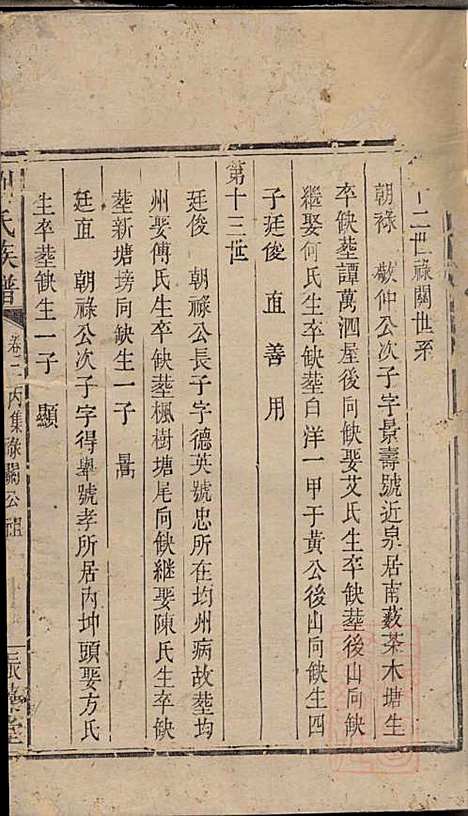 十二世祿關世系
朝祿 敬仲公次子字景壽號近泉居南藪茶木塘生
卒缺塟譚萬泗屋後向缺娶艾氏生卒缺塟後山向缺
繼娶何氏生卒缺塟白洋一甲于黃公後山向缺生四
子廷俊 直 善 用
第十三世
廷俊 朝祿公長子字德英號忠所在均州病故塟均
州娶傅氏生卒缺塟楓樹塘尾向缺繼娶陳氏生卒缺
塟新塘塝向缺生一子 暠
廷直 朝祿公次子字得舉號孝所居內坤頭娶方氏
生卒塟缺生一子 顯
氏族譜
卷二內集祿關公